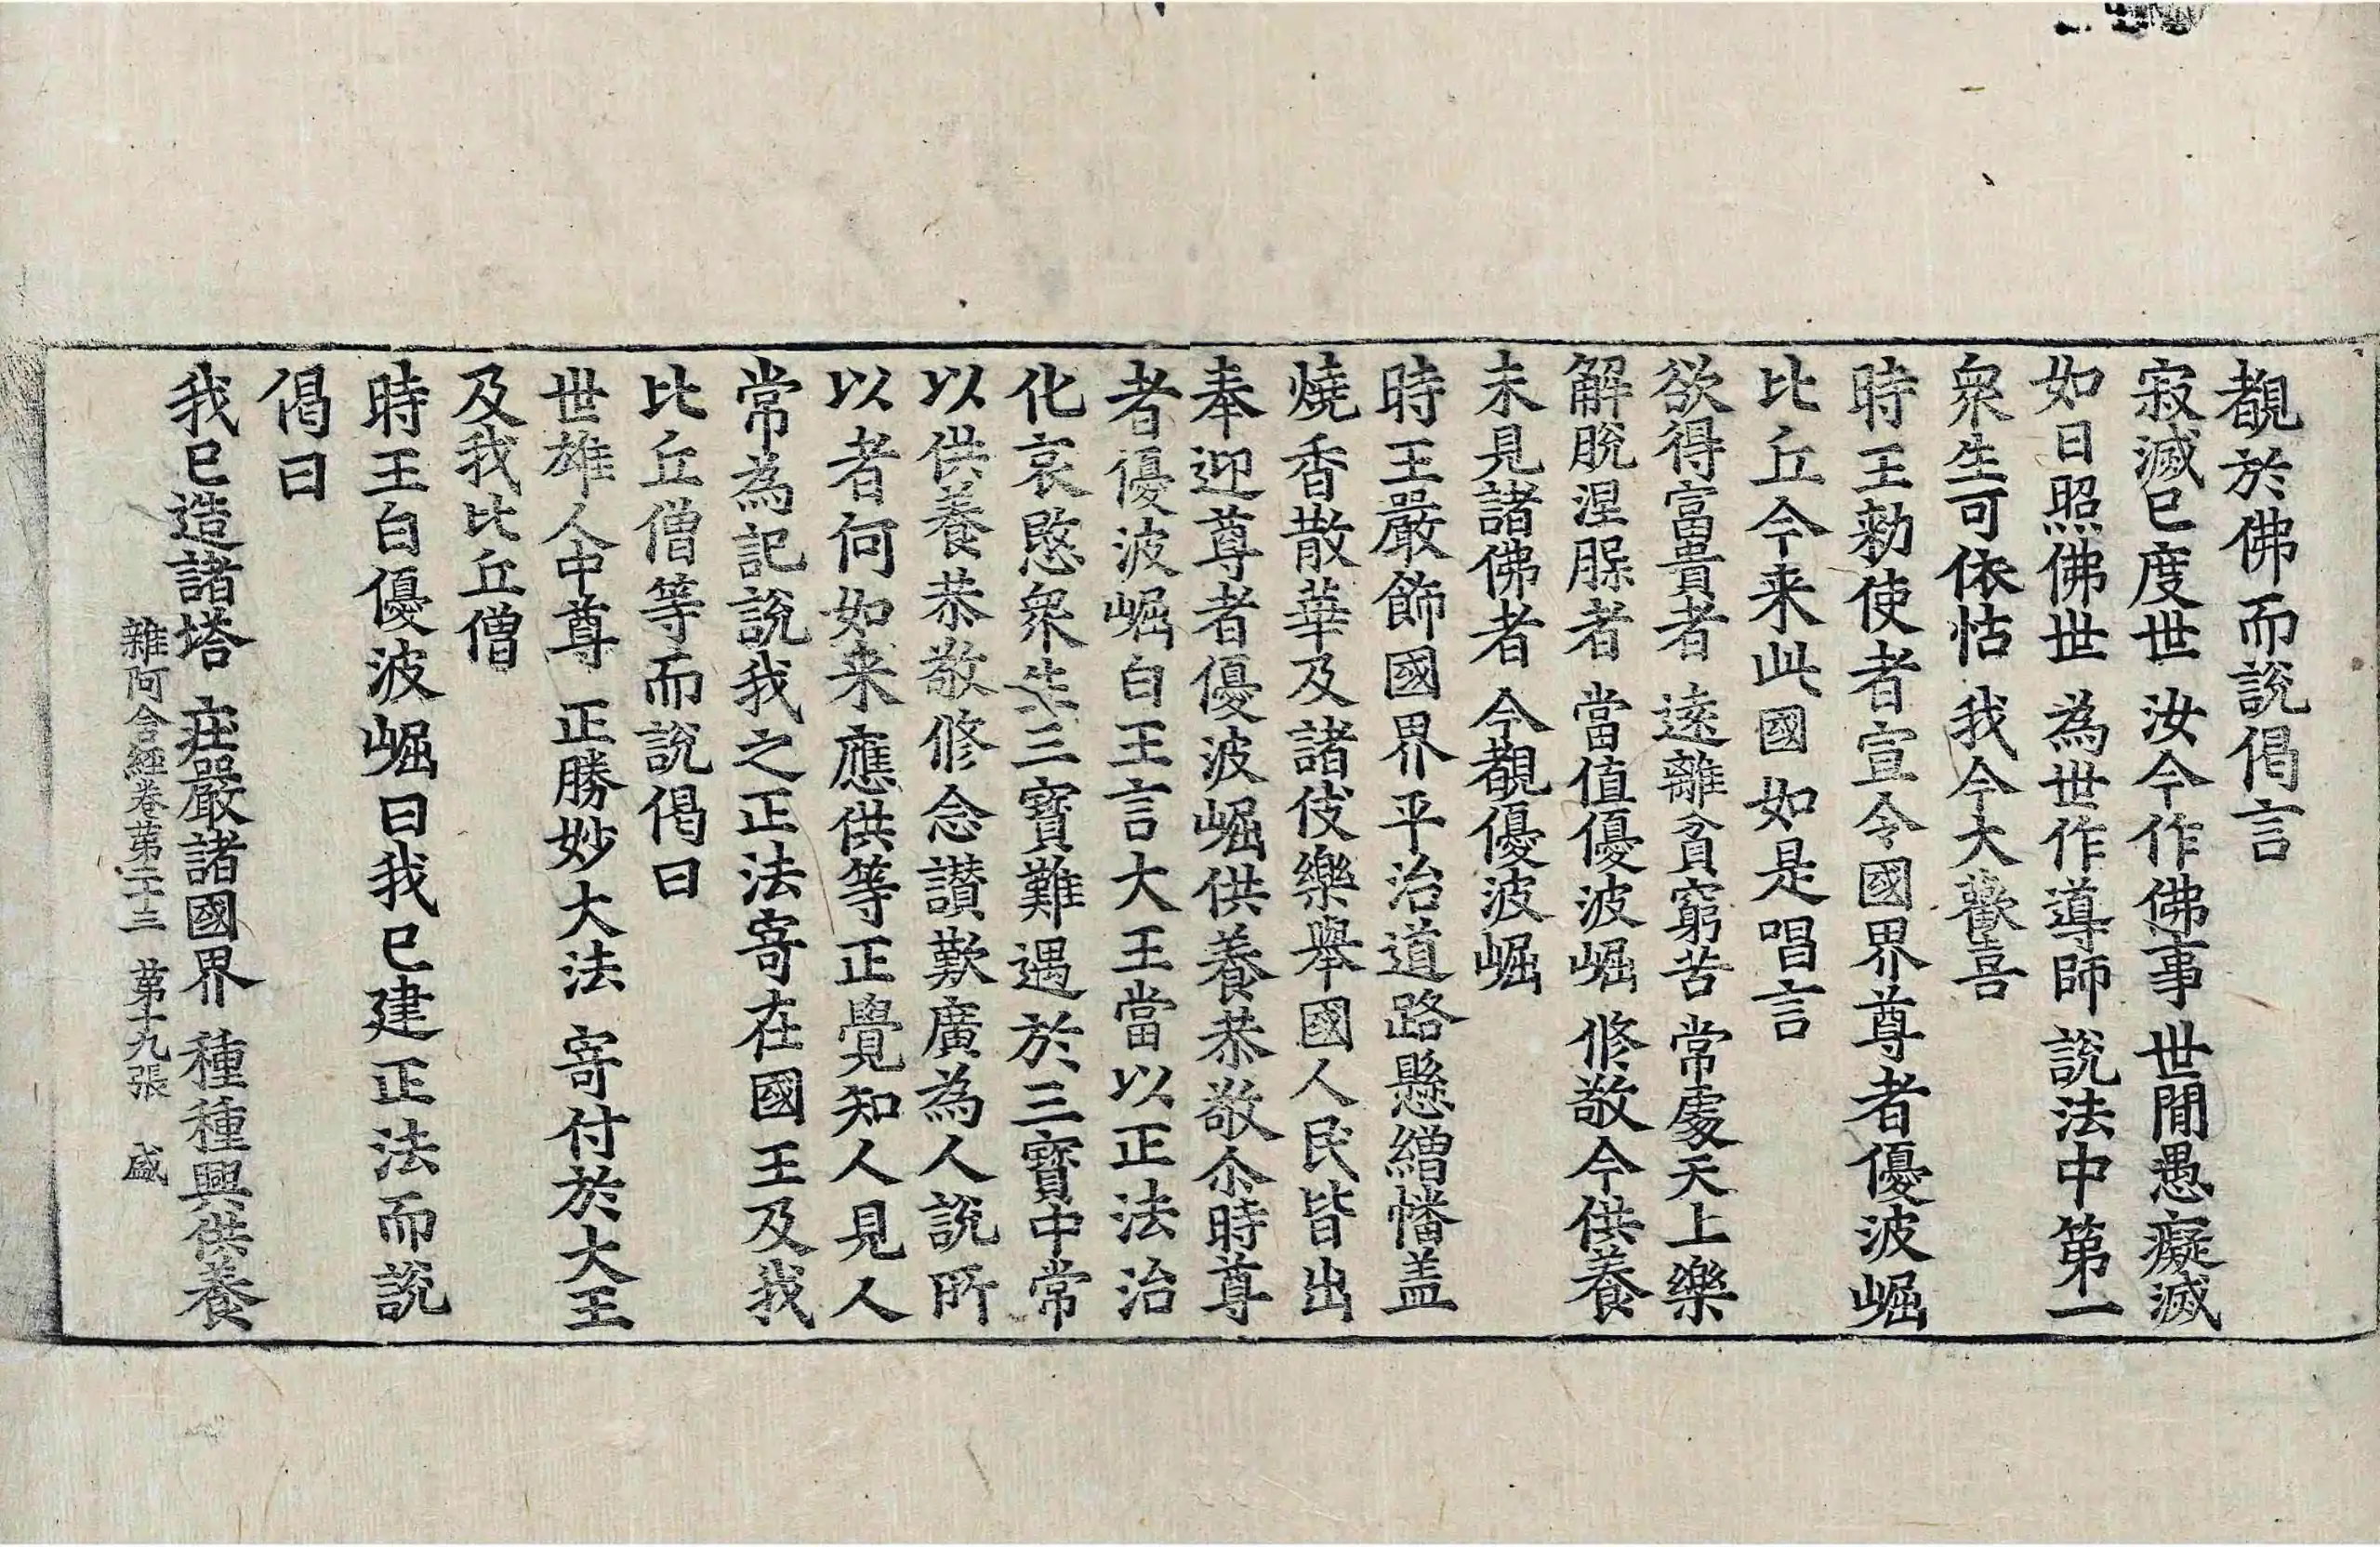 覩於佛而說偈言
寂滅已度世 汝今作佛事 世閒愚癡滅
如日照佛世 為世作導師 說法中第一
衆生可依怙 我今大歡喜
時王勑使者宣令國界尊者優波崛
比丘今来此國如是唱言
欲得富貴者 遠離貧窮苦 常處天上樂
解脫涅脲者 當值優波崛 修敬今供養
未見諸佛者 今覩優波崛
時王嚴飾國界平治道路懸繒幡盖
燒香散華及諸伎樂舉國人民皆出
奉迎尊者優波崛供養恭敬尒時尊
者優波崛白王言大王當以正法治
化哀愍衆生三寶難遇於三寶中常
以供養恭敬修念讃歎廣為人說所
以者何如来應供等正覺知人見人
常為記說我之正法寄在國王及我
比丘僧等而說偈曰
世雄人中尊 正勝妙大法 寄付於大王
及我比丘僧
時王白優波崛曰我已建正法而說
偈曰
我已造諸塔 莊嚴諸國界 種種興供養
雜阿含經卷第二十三 第十九張 盛